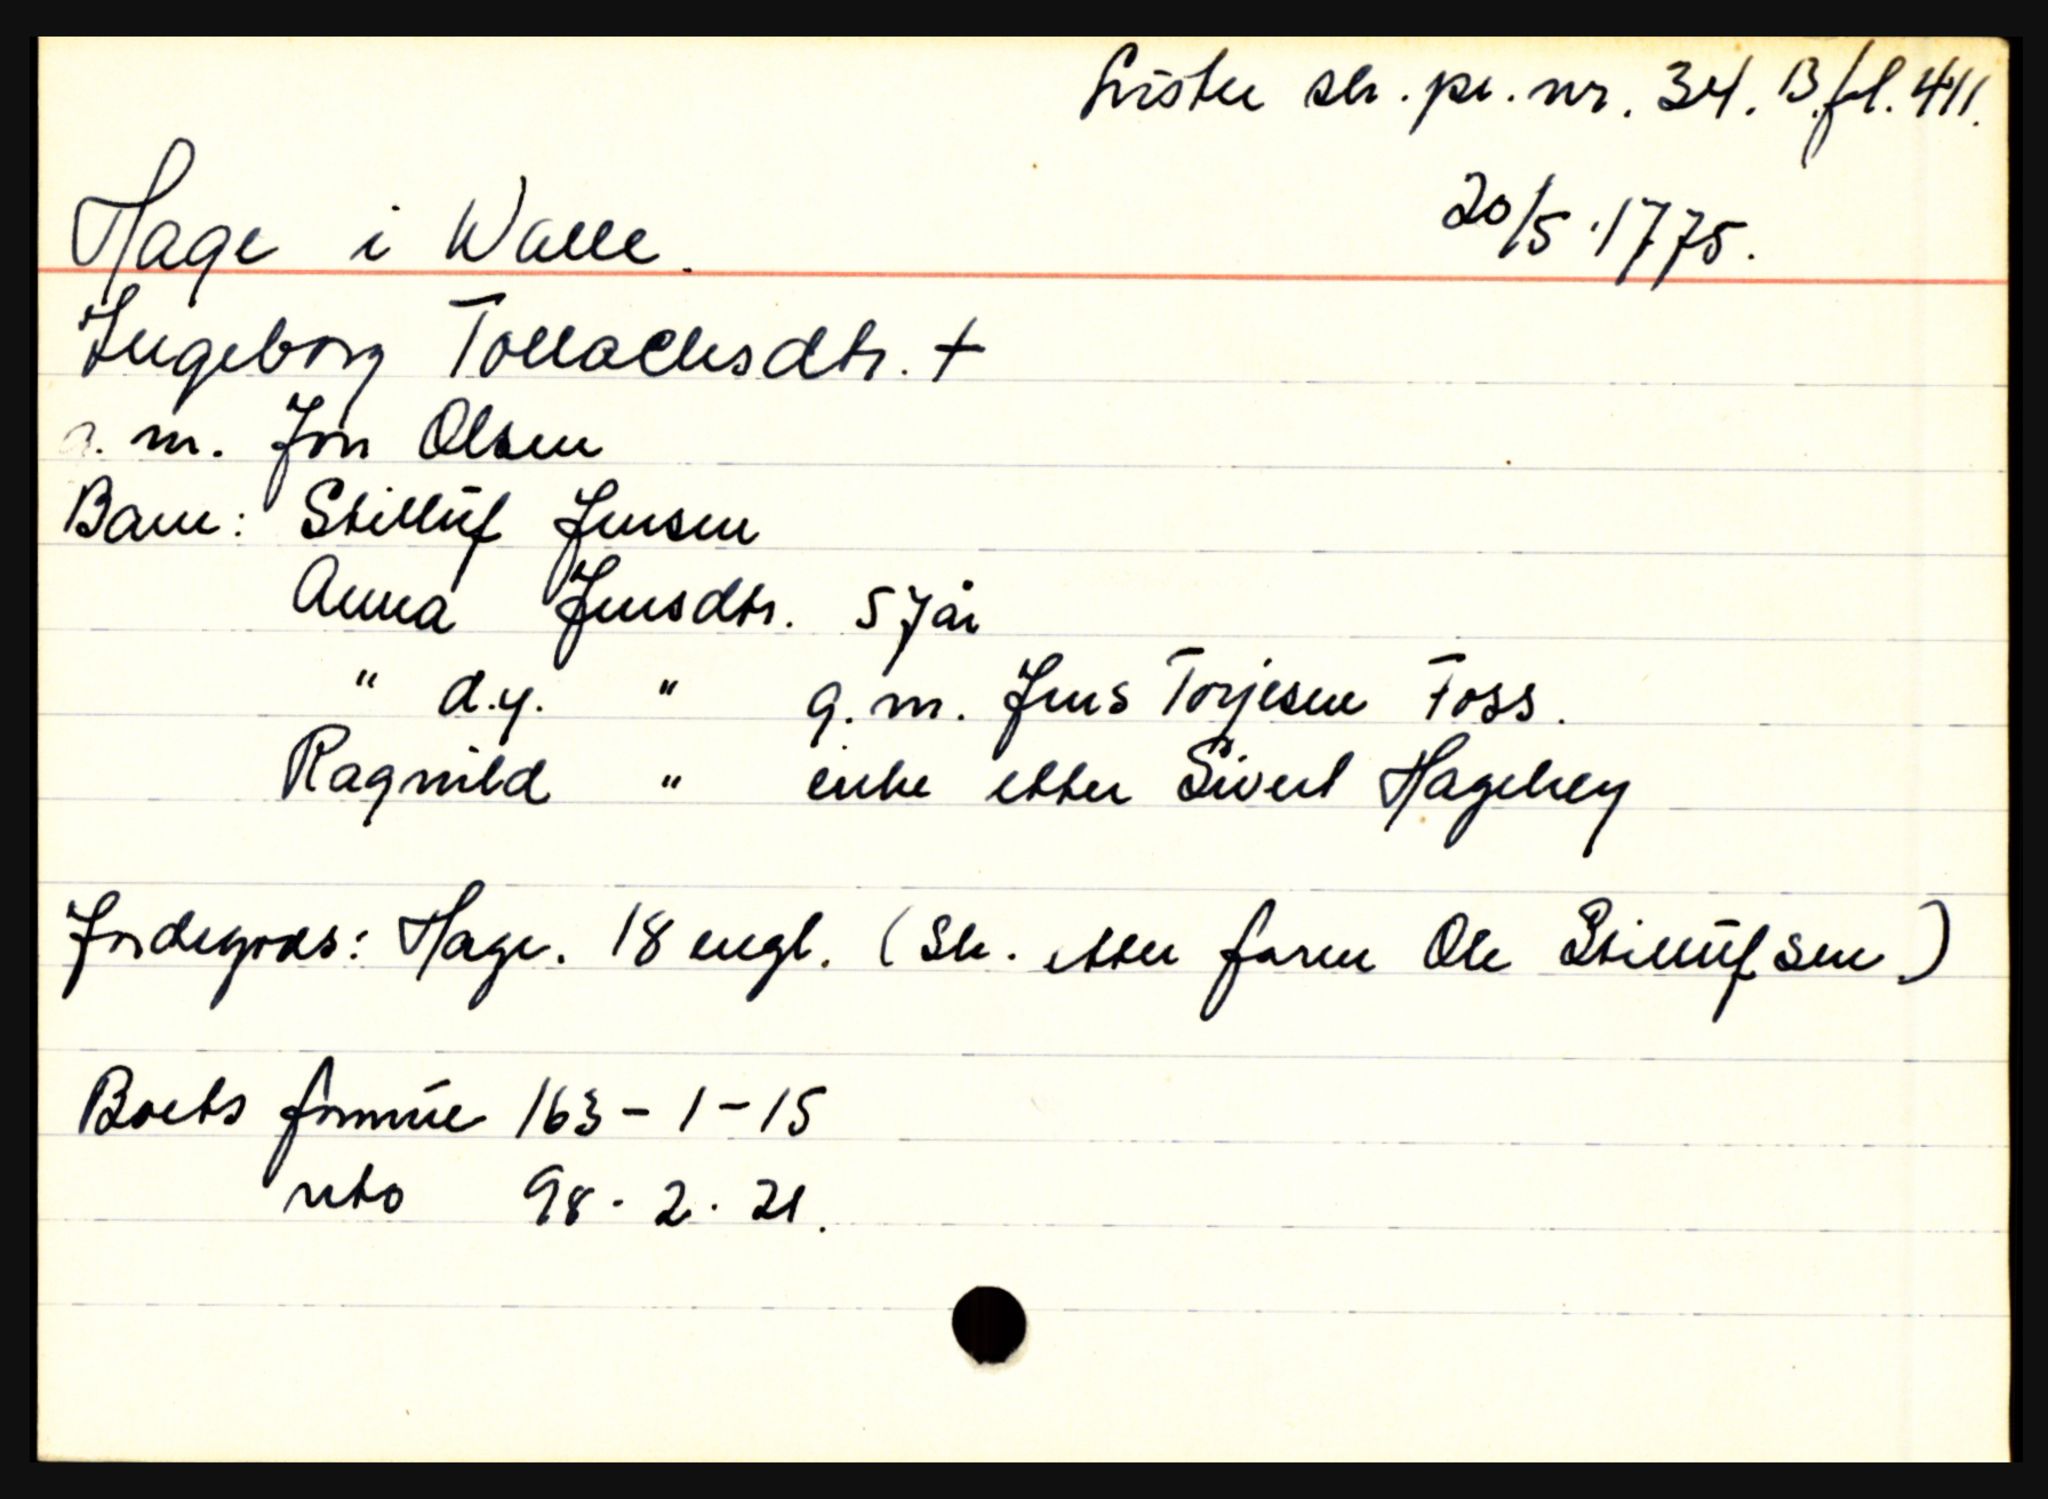 Lister sk. pr. nr. 34. B. fol. 411.
Hage i Walle.
20/5 1775.
Ingeborg Tollachsdtr. +
g. m. Jon Olsen
Barn: Stilluf Jensen
Anna Jensdtr. 57 år
" d.y. " g. m. Jens Torjesen Foss.
Ragnild " enke etter Sivert Hagekey
Jordegods: Hage. 18 engl. (Sk. etter faren Ole Stillufsen)
Boets formue 163 - 1 - 15
neto 98 . 2 . 21.